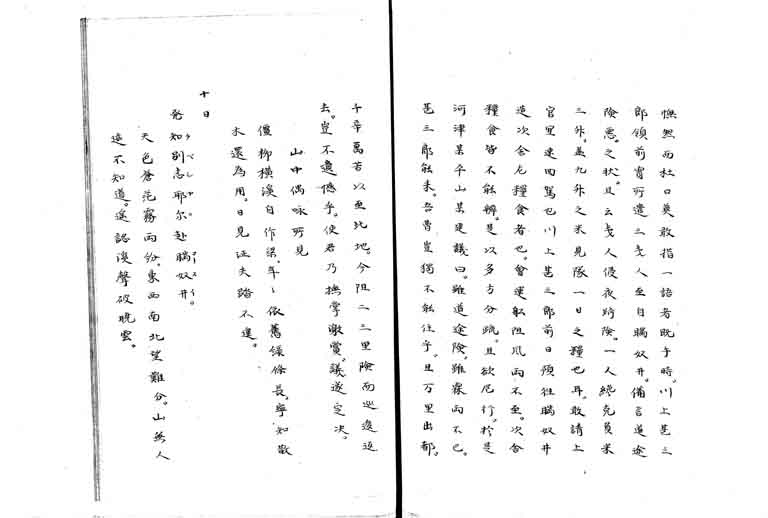 憮然而杜口莫敢指一語者既于時川上甚三
郎領前宵所遣三夷人至自腦奴井。備言道途
險悪之状。且云夷人侵夜踄險。一人終克負米
三外。蓋九外之米見隊一日之糧也耳。敢請上
官里連四駕也川上甚三郎前日須往腦奴井
造次舍尤糧食者也。會運船阻風雨不至。次舍
糧食皆不能辨。是以多方分疏。且欲尼行。於是
河津某平山某建議曰。雖道途險。雖霖雨不已。
甚三郎能来。吾曹豈獨不能往乎。且万里出都。
千辛萬苦以至此地。今阻二三里險而逡巡返
去。豈不遺憾乎。使君乃撫掌激賞。議遂定决。
山中偶咏所見
偃柳橫溪自作梁。年〻依舊緑條長。寧知散
木還為用。日見征夫踏不遑。
十日
発知別志耶尔赴腦奴井。
天色蒼茫霧雨紛。東西南北望難分。山無人
迹不知道。遙認溪聲破晩雲。